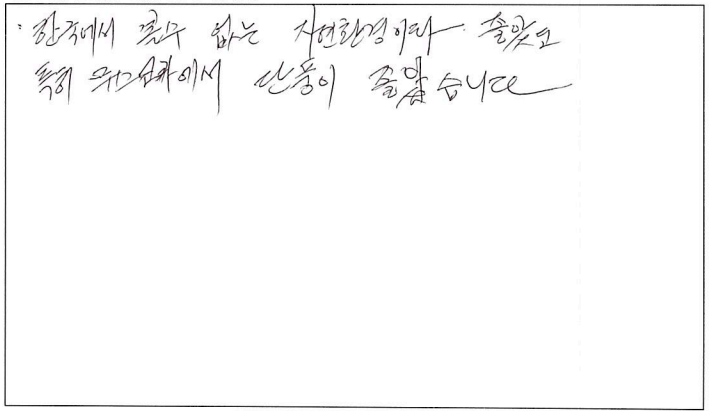 · 한국에서 볼수 없는 자연환경이라 좋았고
특히 에서 단풍이 좋았습니다